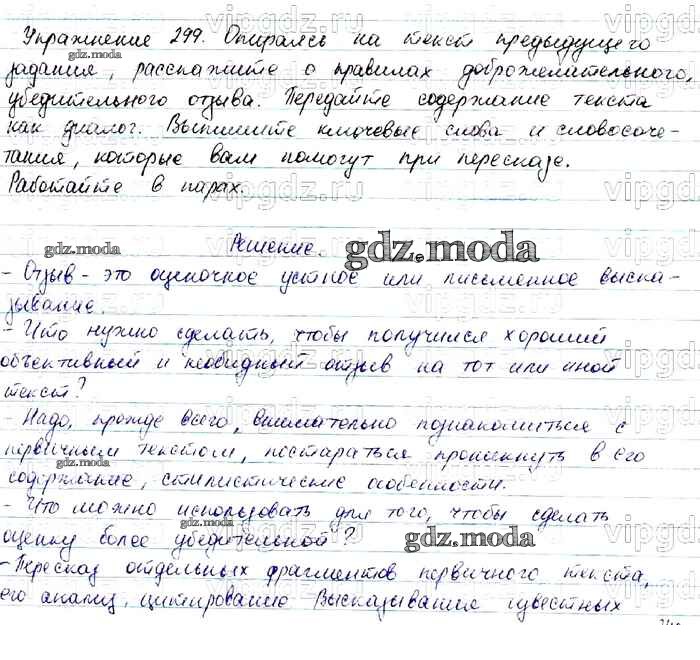 Упражнение 299. Опираясь на текст предыдущего
gdz.moda
задания, расскажите о правилах доброжелательного,
убедительного отзыва. Передайте содержание текста
как диалог. Выпишите ключевые слова и словосоче-
тания, которые вам помогут при пересказе.
Работайте в парах.
Решение.
gdz.moda
gdz.moda
- Отзыв - это оценочное устное или письменное выска-
зывание.
- Что нужно сделать, чтобы получился хороший
объективный и необидный отзыв на тот или иной
текст?
- Надо, прежде всего, внимательно познакомиться с
первичным текстом, постараться проникнуть в его
gdz.moda
содержание, стилистические особенности.
- Что можно использовать для того, чтобы сделать
gdz.moda
оценку более убедительной?
gdz.moda
- Пересказ отдельных фрагментов первичного текста,
его анализ, цитирование Высказывания известных